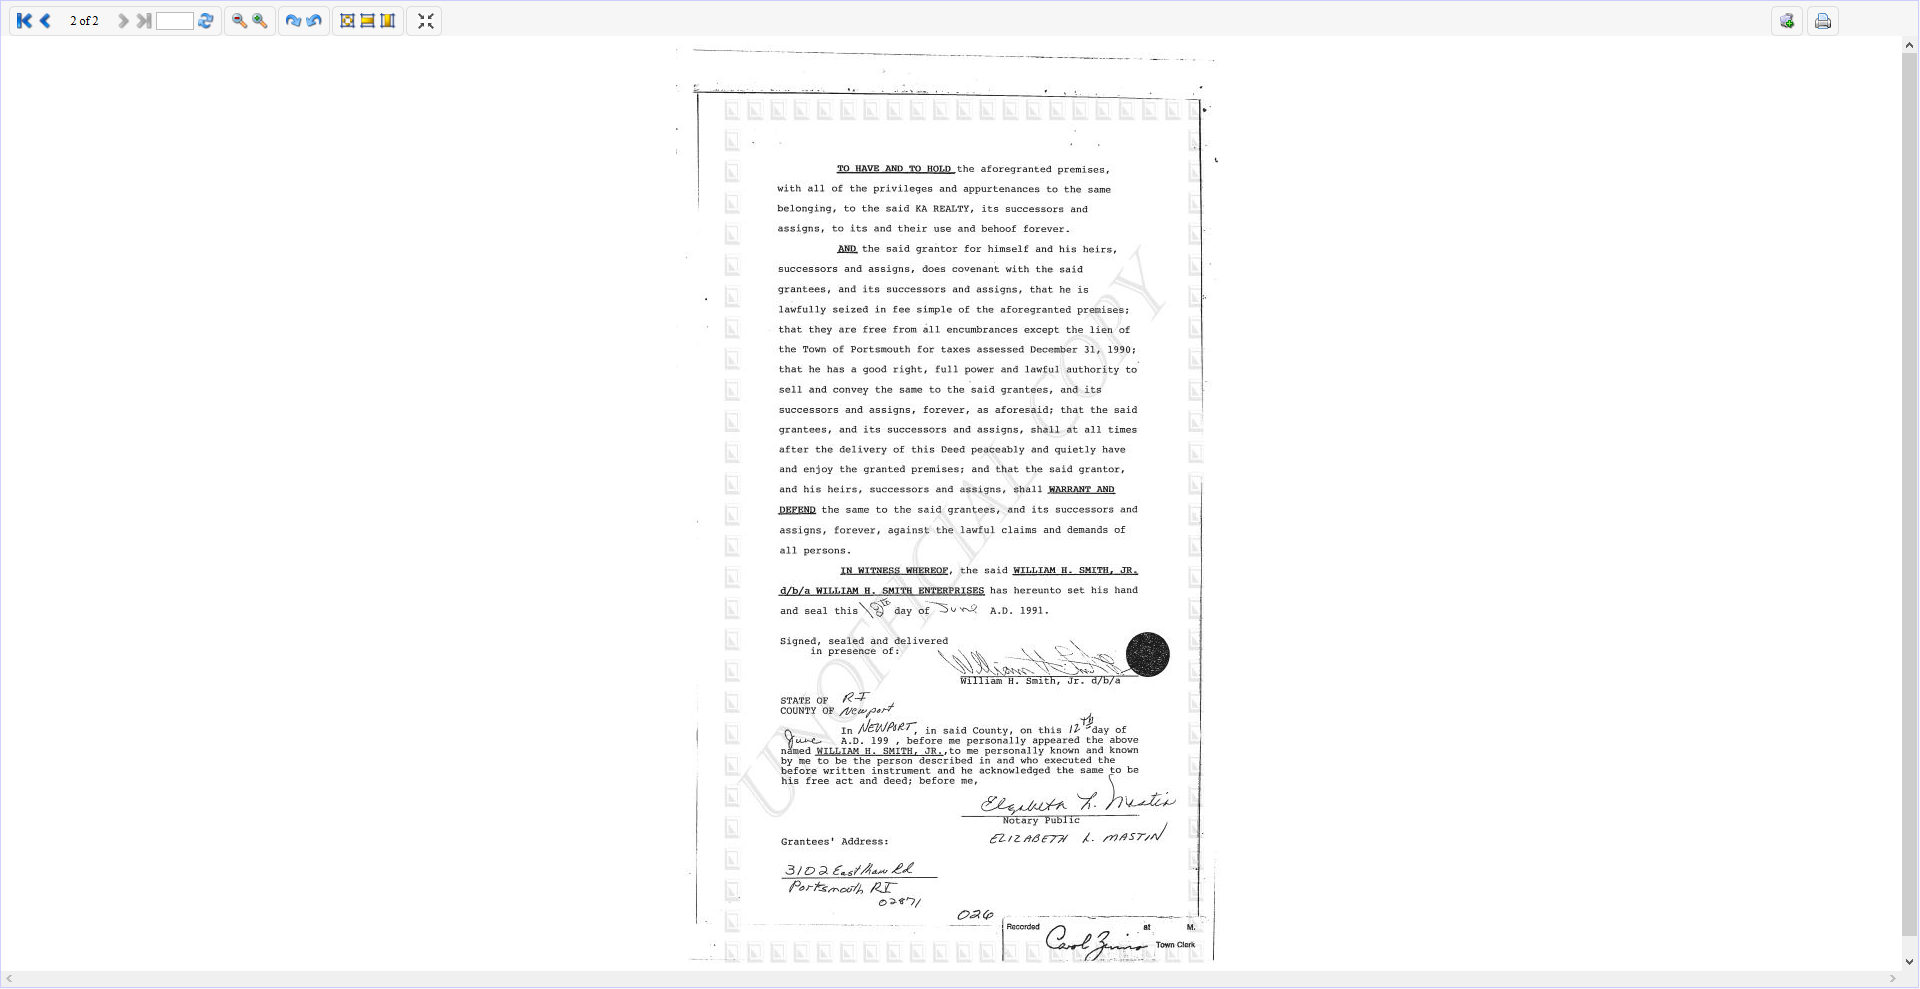 2 of 2
TO HAVE AND TO HOLD the aforegranted premises,
with all of the privileges and appurtenances to the same
belonging, to the said KA REALTY, its successors and
assigns, to its and their use and behoof forever.
AND the said grantor for himself and his heirs,
successors and assigns, does covenant with the said
grantees, and its successors and assigns, that he is
lawfully seized in fee simple of the aforegranted premises;
that they are free from all encumbrances except the lien of
the Town of Portsmouth for taxes assessed December 31, 1990;
that he has a good right, full power and lawful authority to
sell and convey the same to the said grantees, and its
successors and assigns, forever, as aforesaid; that the said
grantees, and its successors and assigns, shall at all times
after the delivery of this Deed peaceably and quietly have
and enjoy the granted premises; and that the said grantor,
and his heirs, successors and assigns, shall WARRANT AND
DEFEND the same to the said grantees, and its successors and
assigns, forever, against the lawful claims and demands of
all persons.
IN WITNESS WHEREOF, the said WILLIAM H. SMITH, JR.
d/b/a WILLIAM H. SMITH ENTERPRISES has hereunto set his hand
and seal this day of June A.D. 1991.
Signed, sealed and delivered
in presence of:
William H. Smith, Jr. d/b/a
STATE OF RI
COUNTY OF Newport
In NEWPORT, in said County, on this 12th day of
June A.D. 199 , before me personally appeared the above
named WILLIAM H. SMITH, JR.,to me personally known and known
by me to be the person described in and who executed the
before written instrument and he acknowledged the same to be
his free act and deed; before me,
Elizabeth L. Mastin
Notary Public
ELIZABETH L. MASTIN
Grantees' Address:
3102 East Main Rd
Portsmouth RI
02871
026
Recorded at M.
Carol Town Clerk
UNOFFICIAL COPY